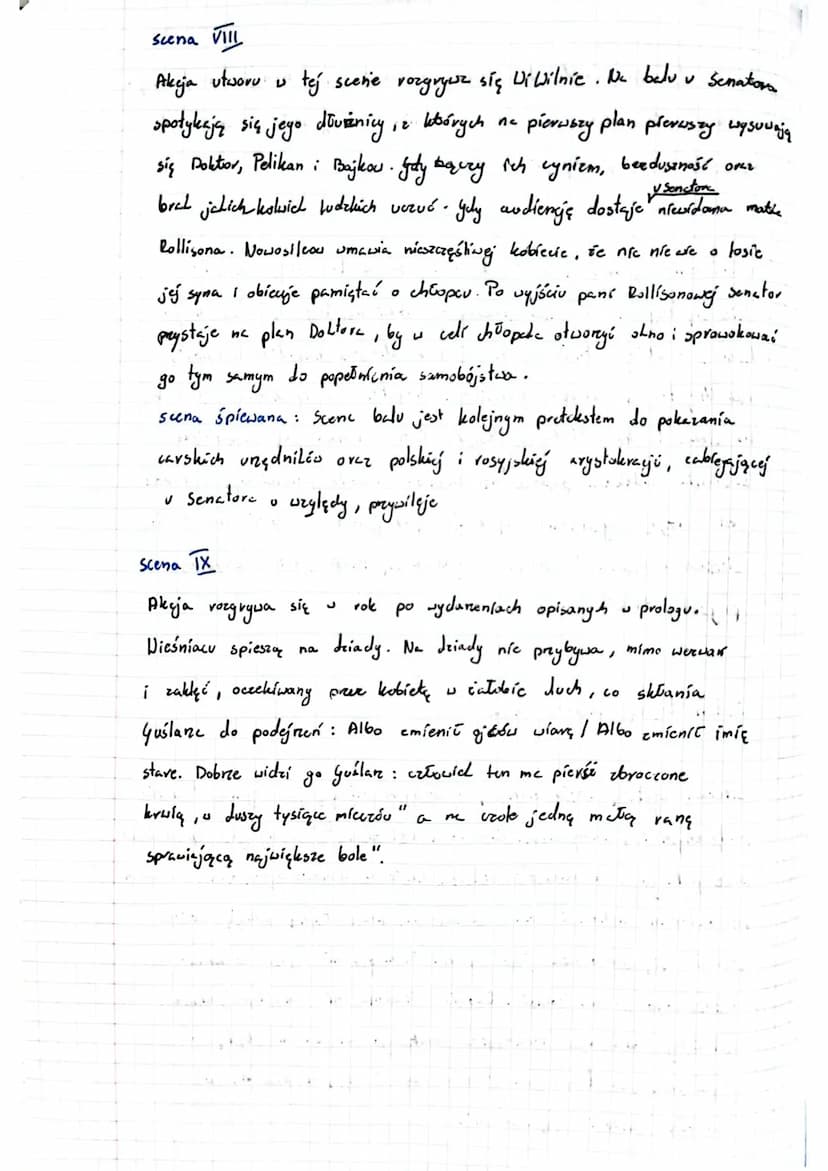 scena VIII
Akcja utworu w tej scenie rozgrywa się W Wilnie. Na balu u Senatora
spotykają się jego dłużnicy, z których na pierwszy plan pierwszy wysuwają
się Doktor, Pelikan i Bajkow. Gdy łączy ich cynizm, bezduszność oraz
u Senatora
brak jakichkolwiek ludzkich uczuć. Gdy audiencję dostaje niewidoma matka
Rollisona. Nowosilcow umawia nieszczęśliwej kobiecie, że nic nie wie o losie
jej syna i obiecuje pamiętać o chłopcu. Po wyjściu pani Rollisonowej senator
przystaje na plan Doktora, by w celi chłopaka otworzyć okno i sprowokować
go tym samym do popełnienia samobójstwa.
scena śpiewana: Scena balu jest kolejnym pretekstem do pokazania
carskich urzędników oraz polskiej i rosyjskiej arystokracji, zabiegającej
u Senatora o względy, przywileje
scena IX
Akcja rozgrywa się w rok po wydarzeniach opisanych w prologu.
Wieśniacy spieszą na dziady. Na dziady nie przybywa, mimo wezwań
i zaklęć, oczekiwany przez kobietę w żałobie duch, co skłania
Guślarza do podejrzeń: Albo zmienił ojców wiarę / Albo zmienił imię
stare. Dobrze widzi go Guślarz: człowiek ten ma pierśi zbroczone
krwią, w duszy tysiące mieczów" a na czole jedną małą ranę
sprawiającą największe bole".